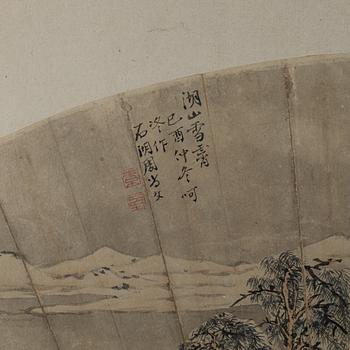 湖山雪霽
己酉仲冬呵
凍作
石湖周尚文